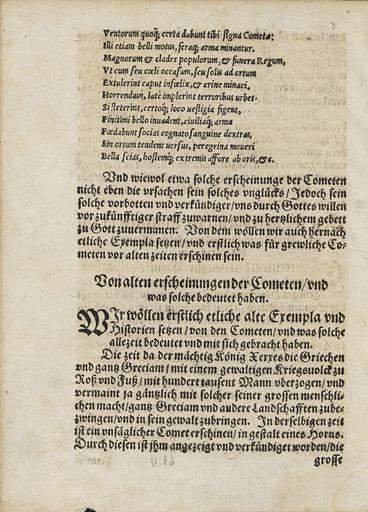 Ventorum quoq; certa dabunt tibi signa Cometæ:
Illi etiam belli motus, feraq; arma minantur.
Magnorum & clades populorum, & funera Regum,
Vt cum seu cœli occasum, seu solis ad ortum
Extulerint caput infœlix, & crine minaci,
Horrendum, latè implerint terroribus urbes.
Si steterint, certoq; loco uestigia figent,
Finitimi bello inuadent, ciuiliaq; arma
Fœdabunt socias cognato sanguine dextras,
Sin ortum tendent uersus, peregrina moueri
Bella scias, hostemq; extremis affore ab oris, &c.
Vnd wiewol etwa solche erscheinunge der Cometen
nicht eben die vrsachen sein solches vnglücks/ Jedoch sein
solche vorbotten vnd verkündiger/ vns durch Gottes willen
vor zukünfftiger straff zuwarnen/ vnd zu hertzlichem gebett
zu Gott zuuermanen. Von dem wöllen wir auch hernach
etliche Exempla setzen/ vnd erstlich was für grewliche Co-
meten vor alten zeiten erschinen sein.
Von alten erscheinungen der Cometen/ vnd
was solche bedeutet haben.
WIr wöllen erstlich etliche alte Exempla vnd
Historien setzen/ von den Cometen/ vnd was solche
allezeit bedeutet vnd mit sich gebracht haben.
Die zeit da der mächtig König Xerxes die Griechen
vnd gantz Greciam/ mit einem gewaltigen Kriegsuolck zu
Roß vnd Fuß/ mit hundert tausent Mann vberzogen/ vnd
vermaint ja gäntzlich mit solcher seiner grossen menschli-
chen macht/ gantz Greciam vnd andere Landschafften zube-
zwingen/ vnd in sein gewalt zubringen. In derselbigen zeit
ist ein vnsäglicher Comet erschinen/ in gestalt eines Horns.
Durch diesen ist jhm angezeigt vnd verkündiget worden/ die
grosse